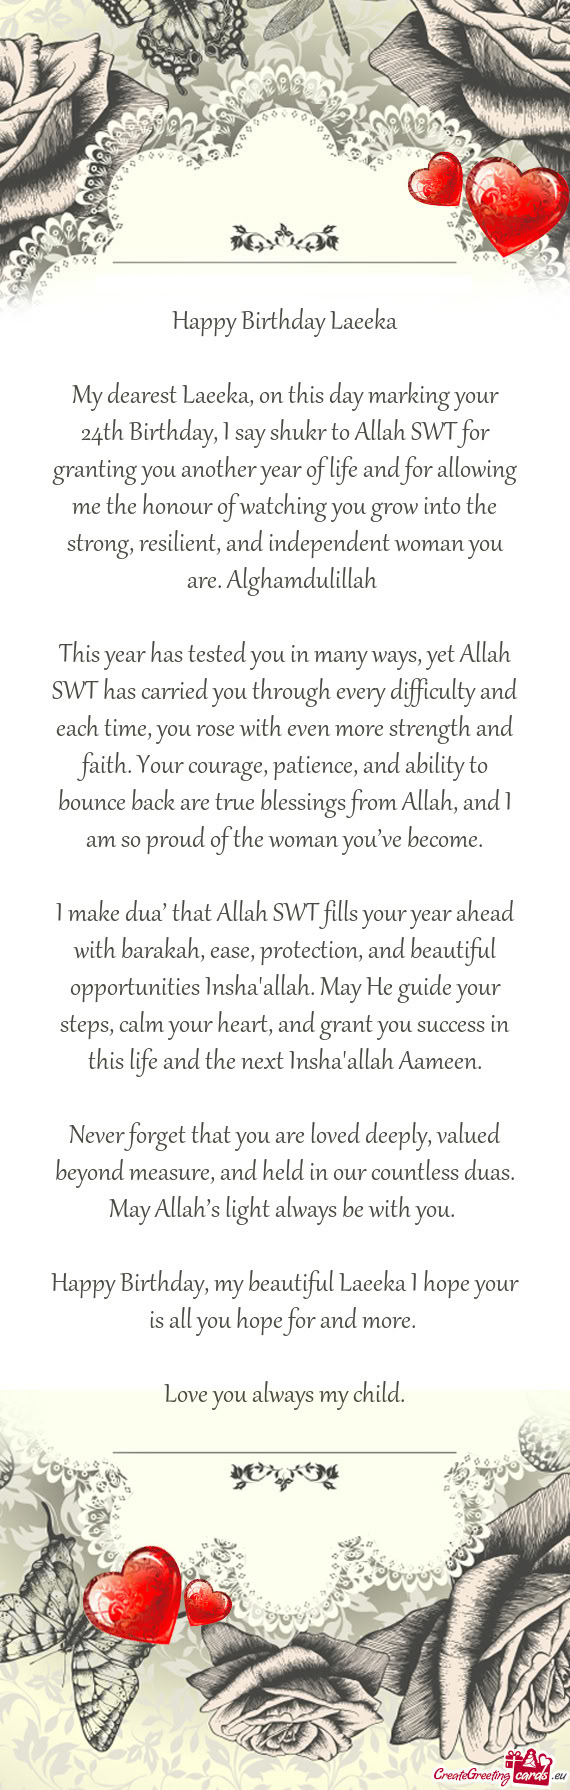 Happy Birthday Laeeka
My dearest Laeeka, on this day marking your
24th Birthday, I say shukr to Allah SWT for
granting you another year of life and for allowing
me the honour of watching you grow into the
strong, resilient, and independent woman you
are. Alghamdulillah
This year has tested you in many ways, yet Allah
SWT has carried you through every difficulty and
each time, you rose with even more strength and
faith. Your courage, patience, and ability to
bounce back are true blessings from Allah, and I
am so proud of the woman you’ve become.
I make dua’ that Allah SWT fills your year ahead
with barakah, ease, protection, and beautiful
opportunities Insha'allah. May He guide your
steps, calm your heart, and grant you success in
this life and the next Insha'allah Aameen.
Never forget that you are loved deeply, valued
beyond measure, and held in our countless duas.
May Allah’s light always be with you.
Happy Birthday, my beautiful Laeeka I hope your
is all you hope for and more.
Love you always my child.
CreateGreetingcards.eu